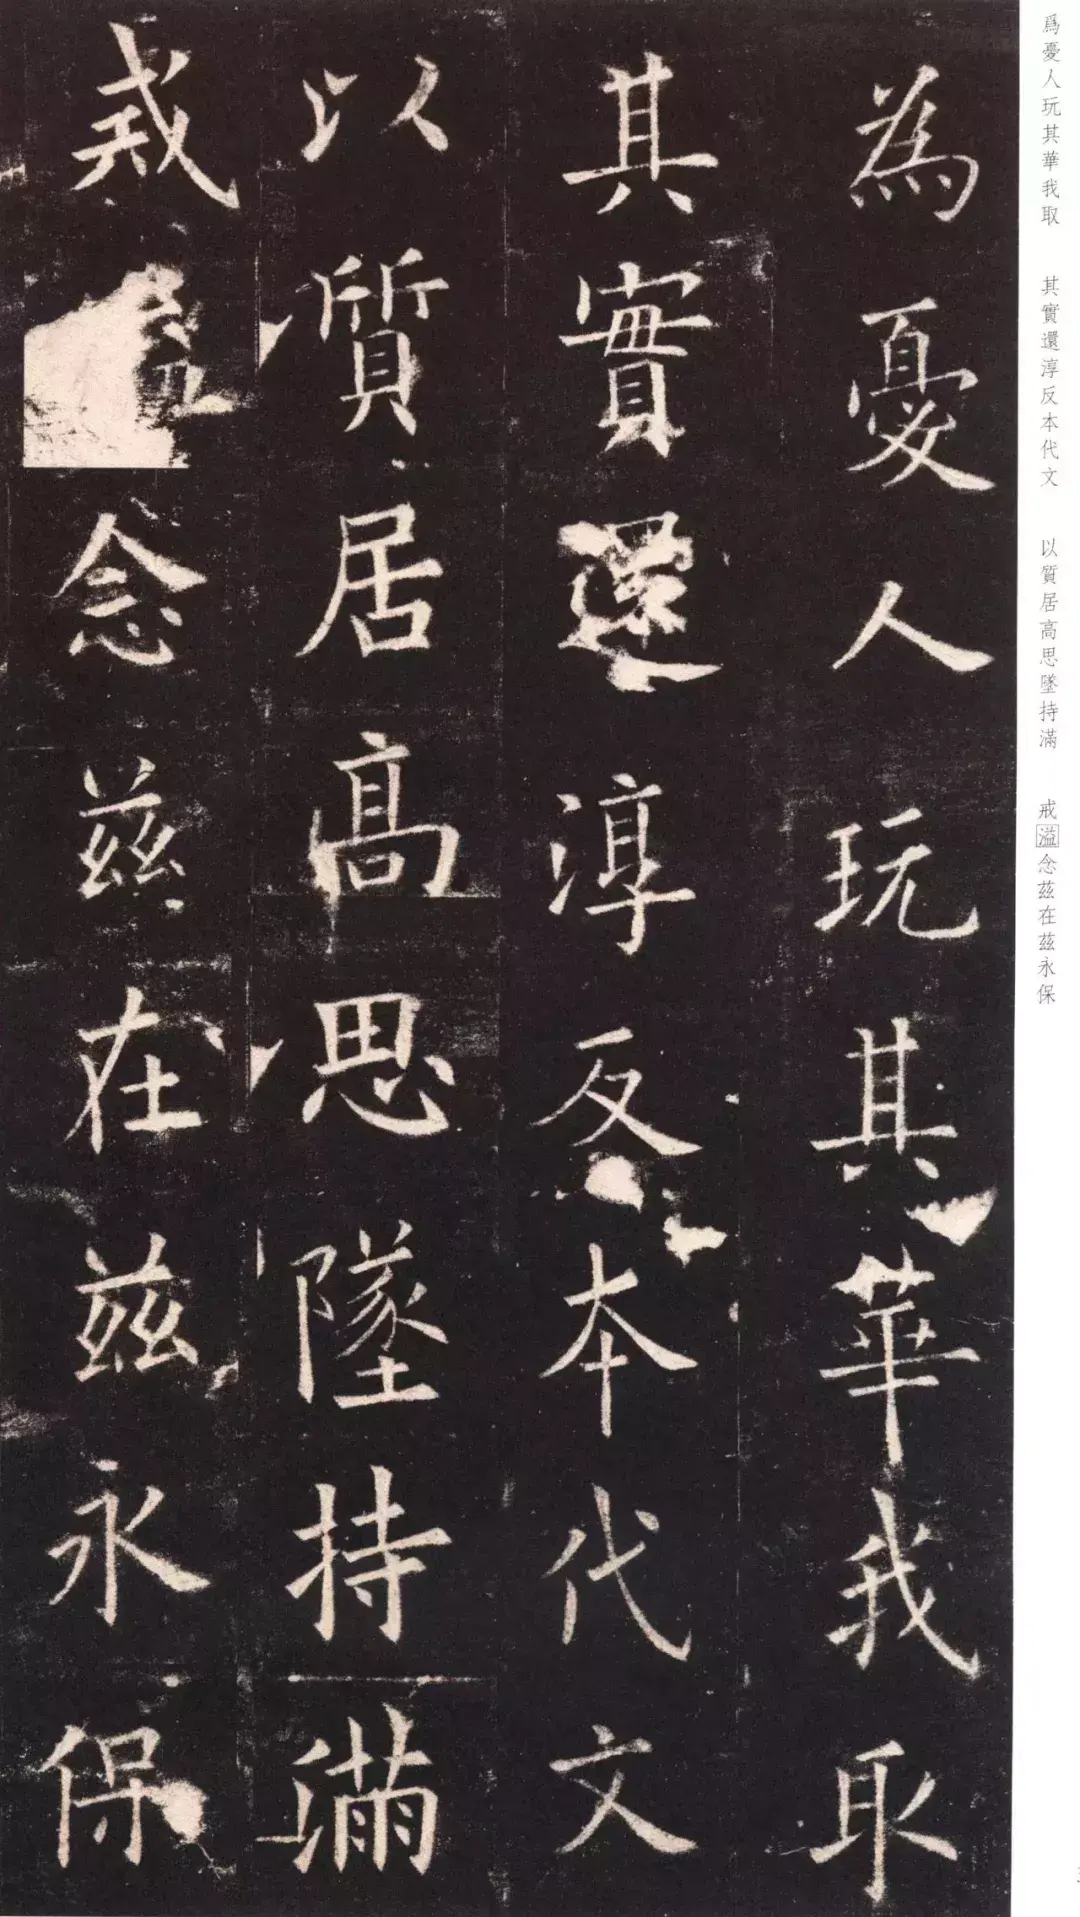 爲憂人玩其華我取 其實還淳反本代文 以質居高思墜持滿 戒溢念兹在兹永保
為憂人玩其華我取
其實還淳反本代文
以質居高思墜持滿
戒念兹在兹永保